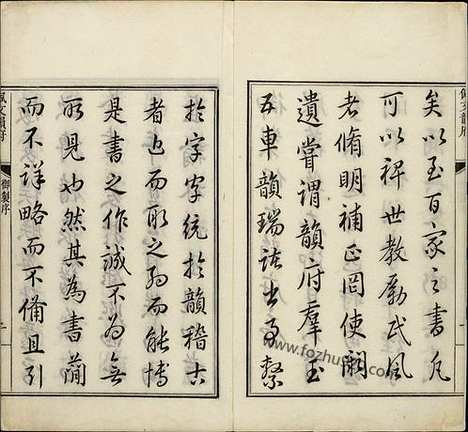 矣以至百家之書凡
可以裨世教勵民風
者脩明補正罔使闕
遺嘗謂韻府羣玉
五車韻瑞諸書事繫
於字字統於韻稽古
者近而取之約而能博
是書之作誠不為無
所見也然其為書簡
而不詳略而不備且引
佩文韻府
御製序